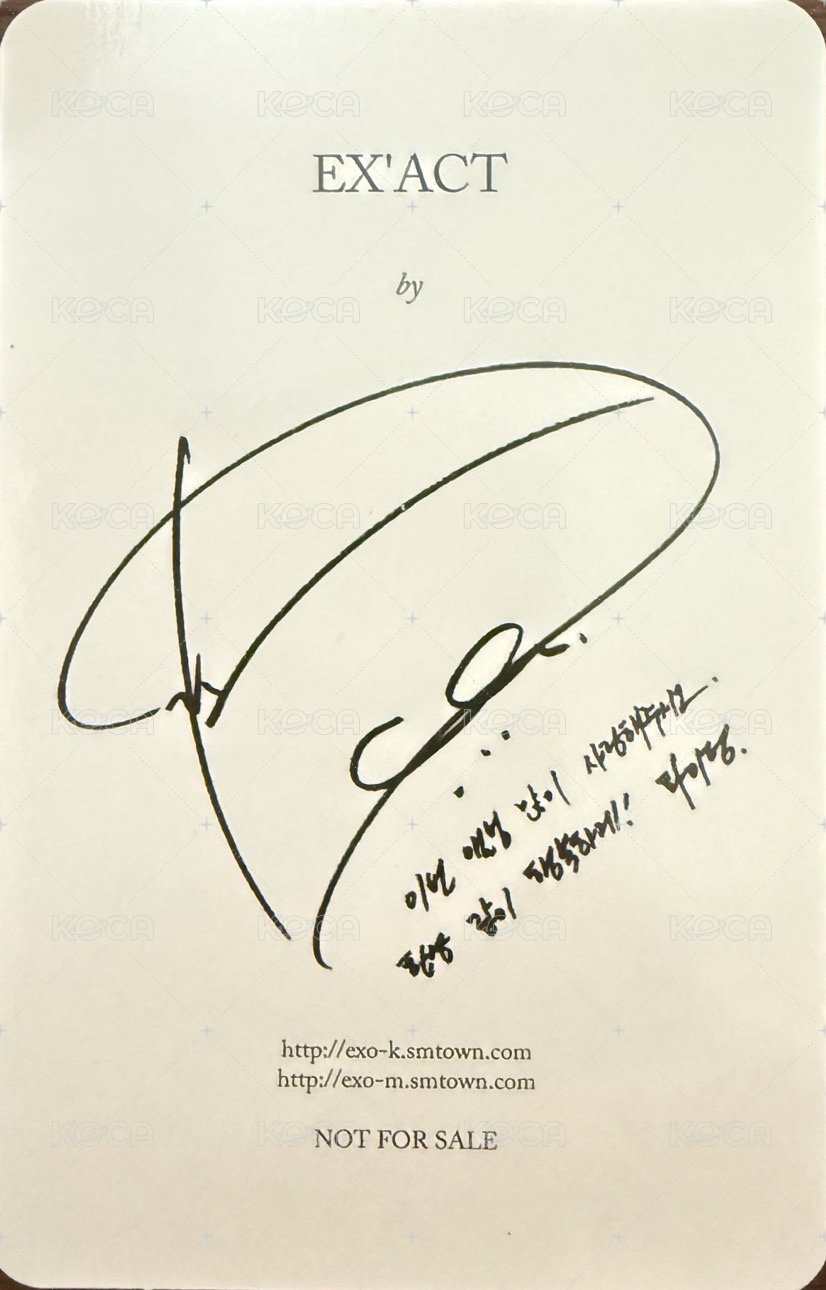 KOCA KOCA KOCA KOCA
EX'ACT
by
KOCA KOCA KOCA KOCA
KOCA KOCA KOCA KOCA
KOCA KOCA KOCA KOCA
이번 앨범 많이 사랑해주시고.
항상 같이
KOCA KOCA KOCA KOCA
http://exo-k.smtown.com
http://exo-m.smtown.com
NOT FOR SALE
KOCA KOCA KOCA KOCA